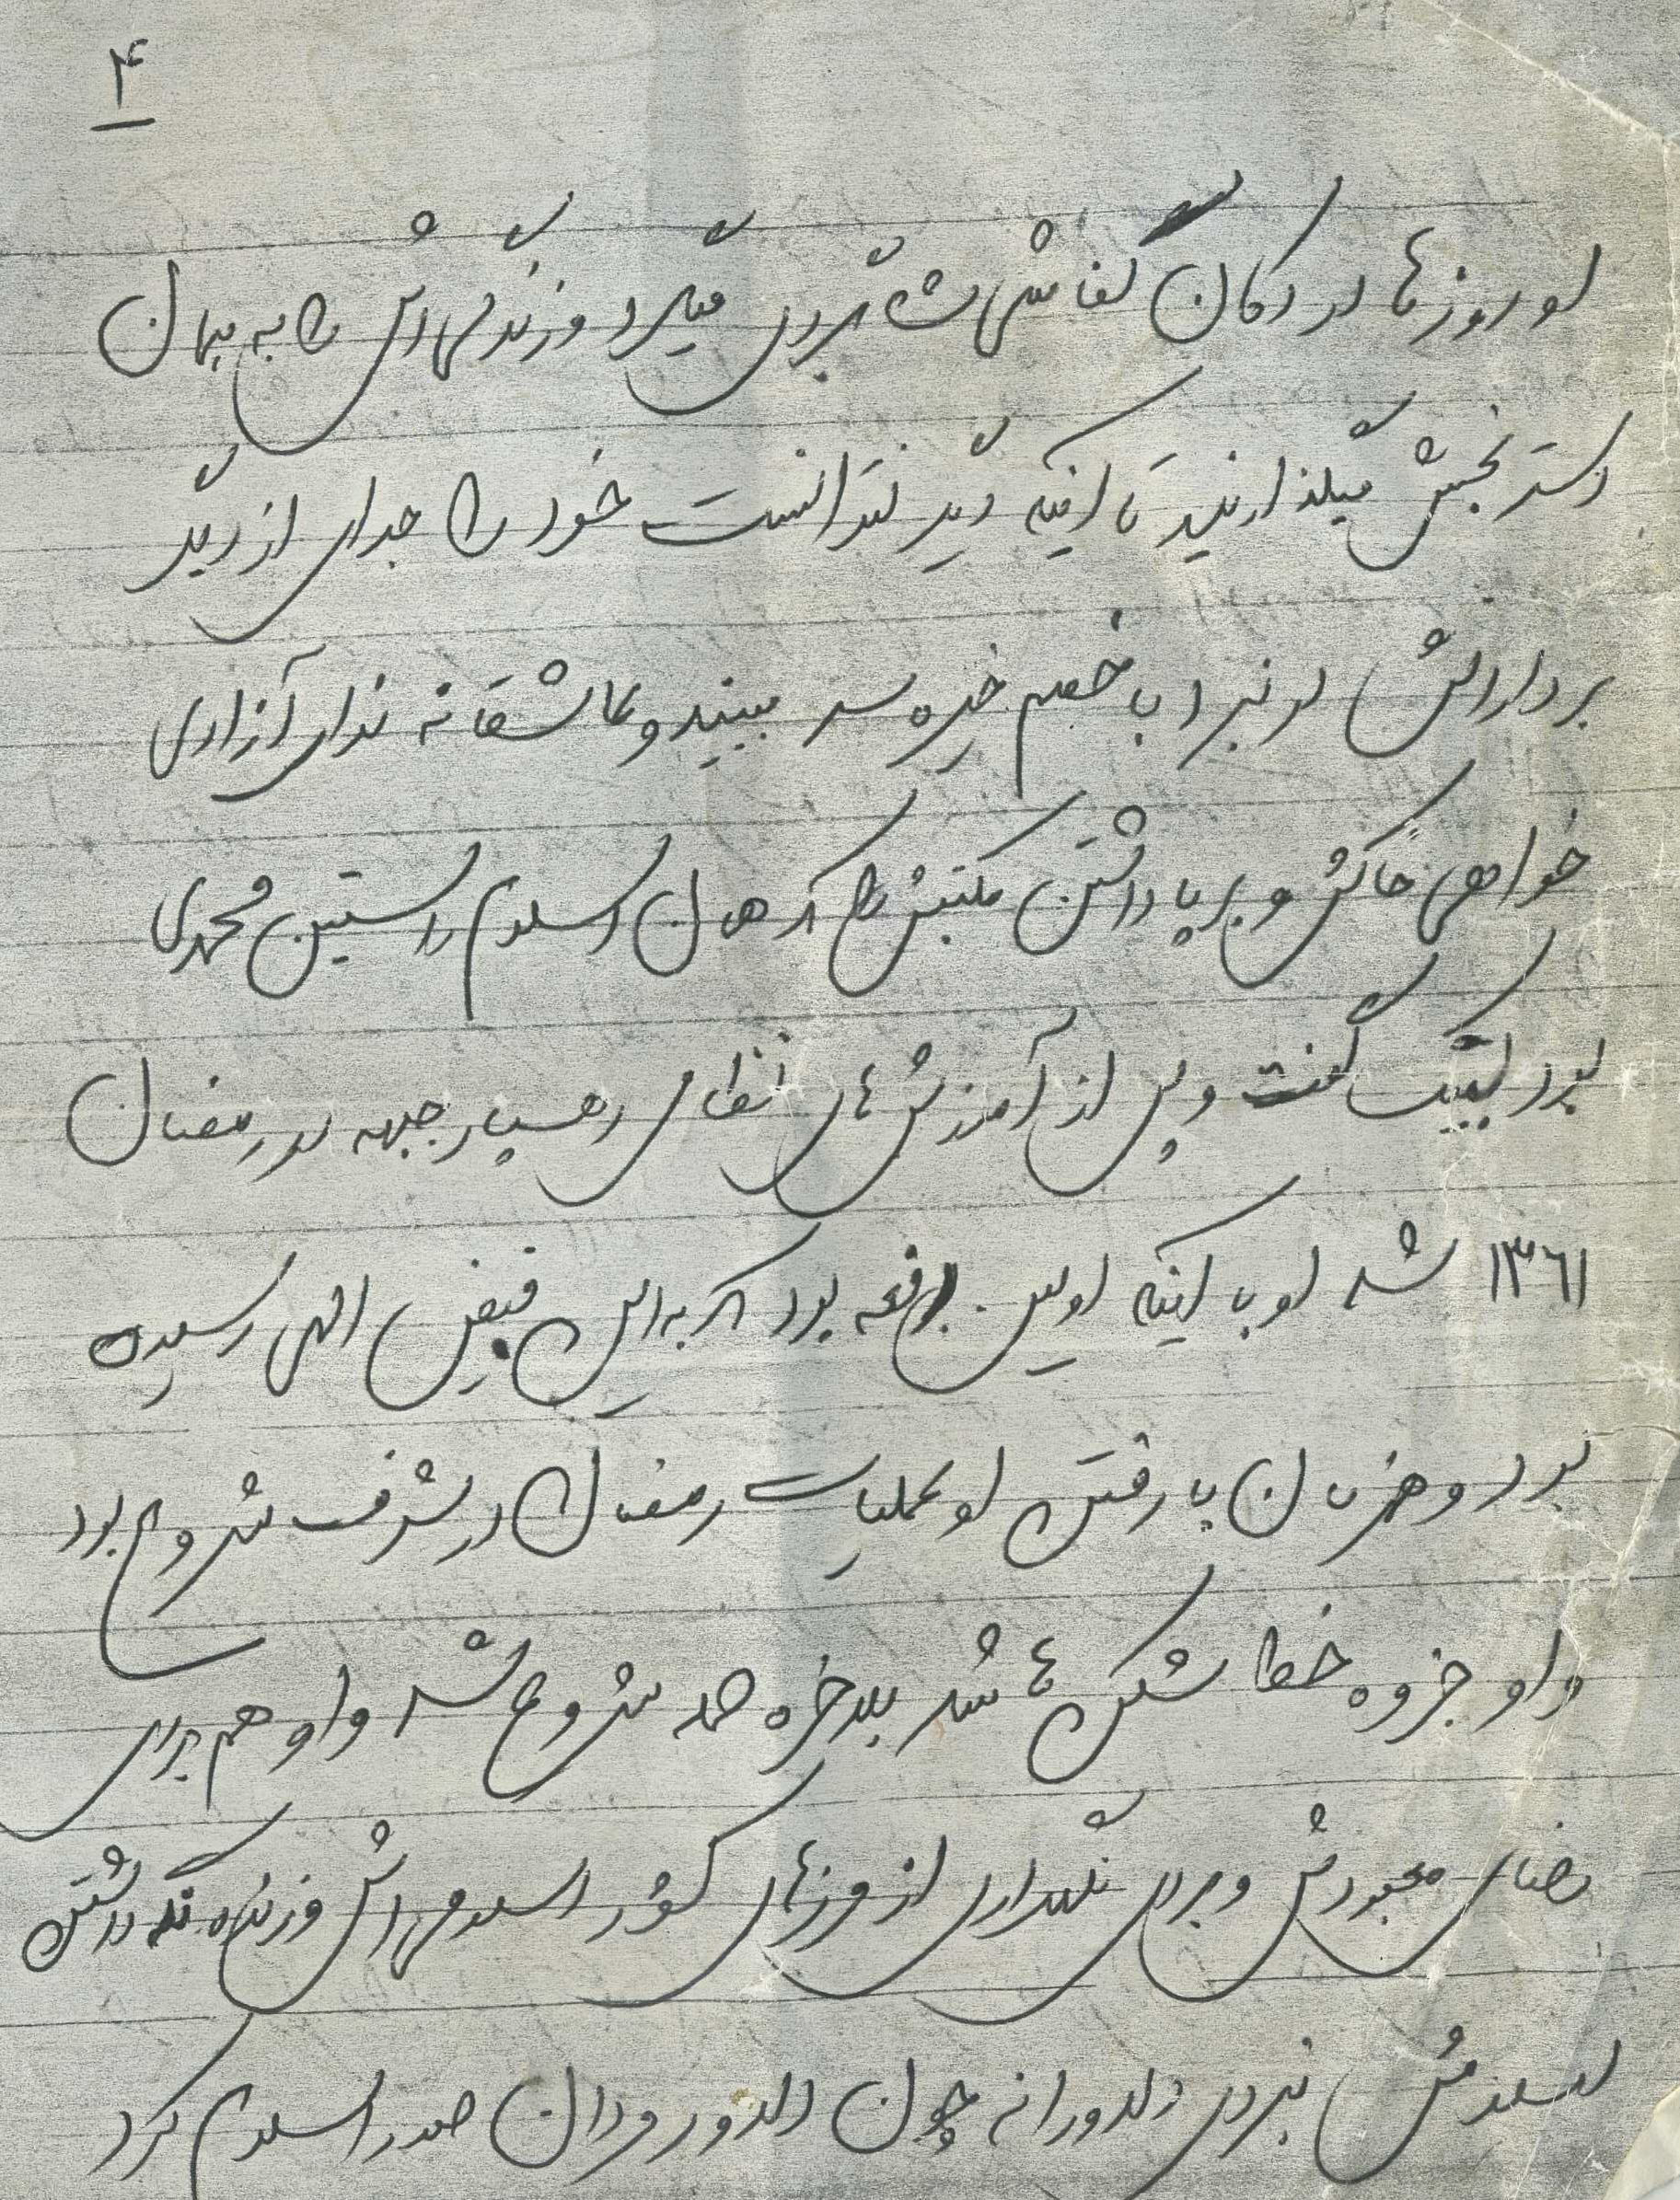 ۴
او روزها در دکان کفاشی شاگردی میکرد و زندگی اش را به همان
دسترنجش میگذارنید تا اینکه دیگر نتوانست خود را جدای از دیگر
بردارانش در نبرد با خصم خیره سر ببیند و عاشقانه ندای آزادی
خواهی خاکش و برپا داشتن مکتبش را که همان اسلام راستین محمدی
بود لبیک گفت و پس از آموزش های نظامی رهسپار جبهه در رمضان
۱۳۶۱ شد او با اینکه اولین دفعه بود که به این فیض الهی رسیده
بود و همزمان با رفتن او عملیات رمضان در شرف شروع بود
و او جزوه خط شکن ها شد بلاخره حمله شروع شد و او هم برای
رضای معبودش و برای نگهداری از مرزهای کشور اسلامی اش و زنده نگه داشتن
اسلامش نبردی دلاورانه چون دلاور مردان صدر اسلام کرد